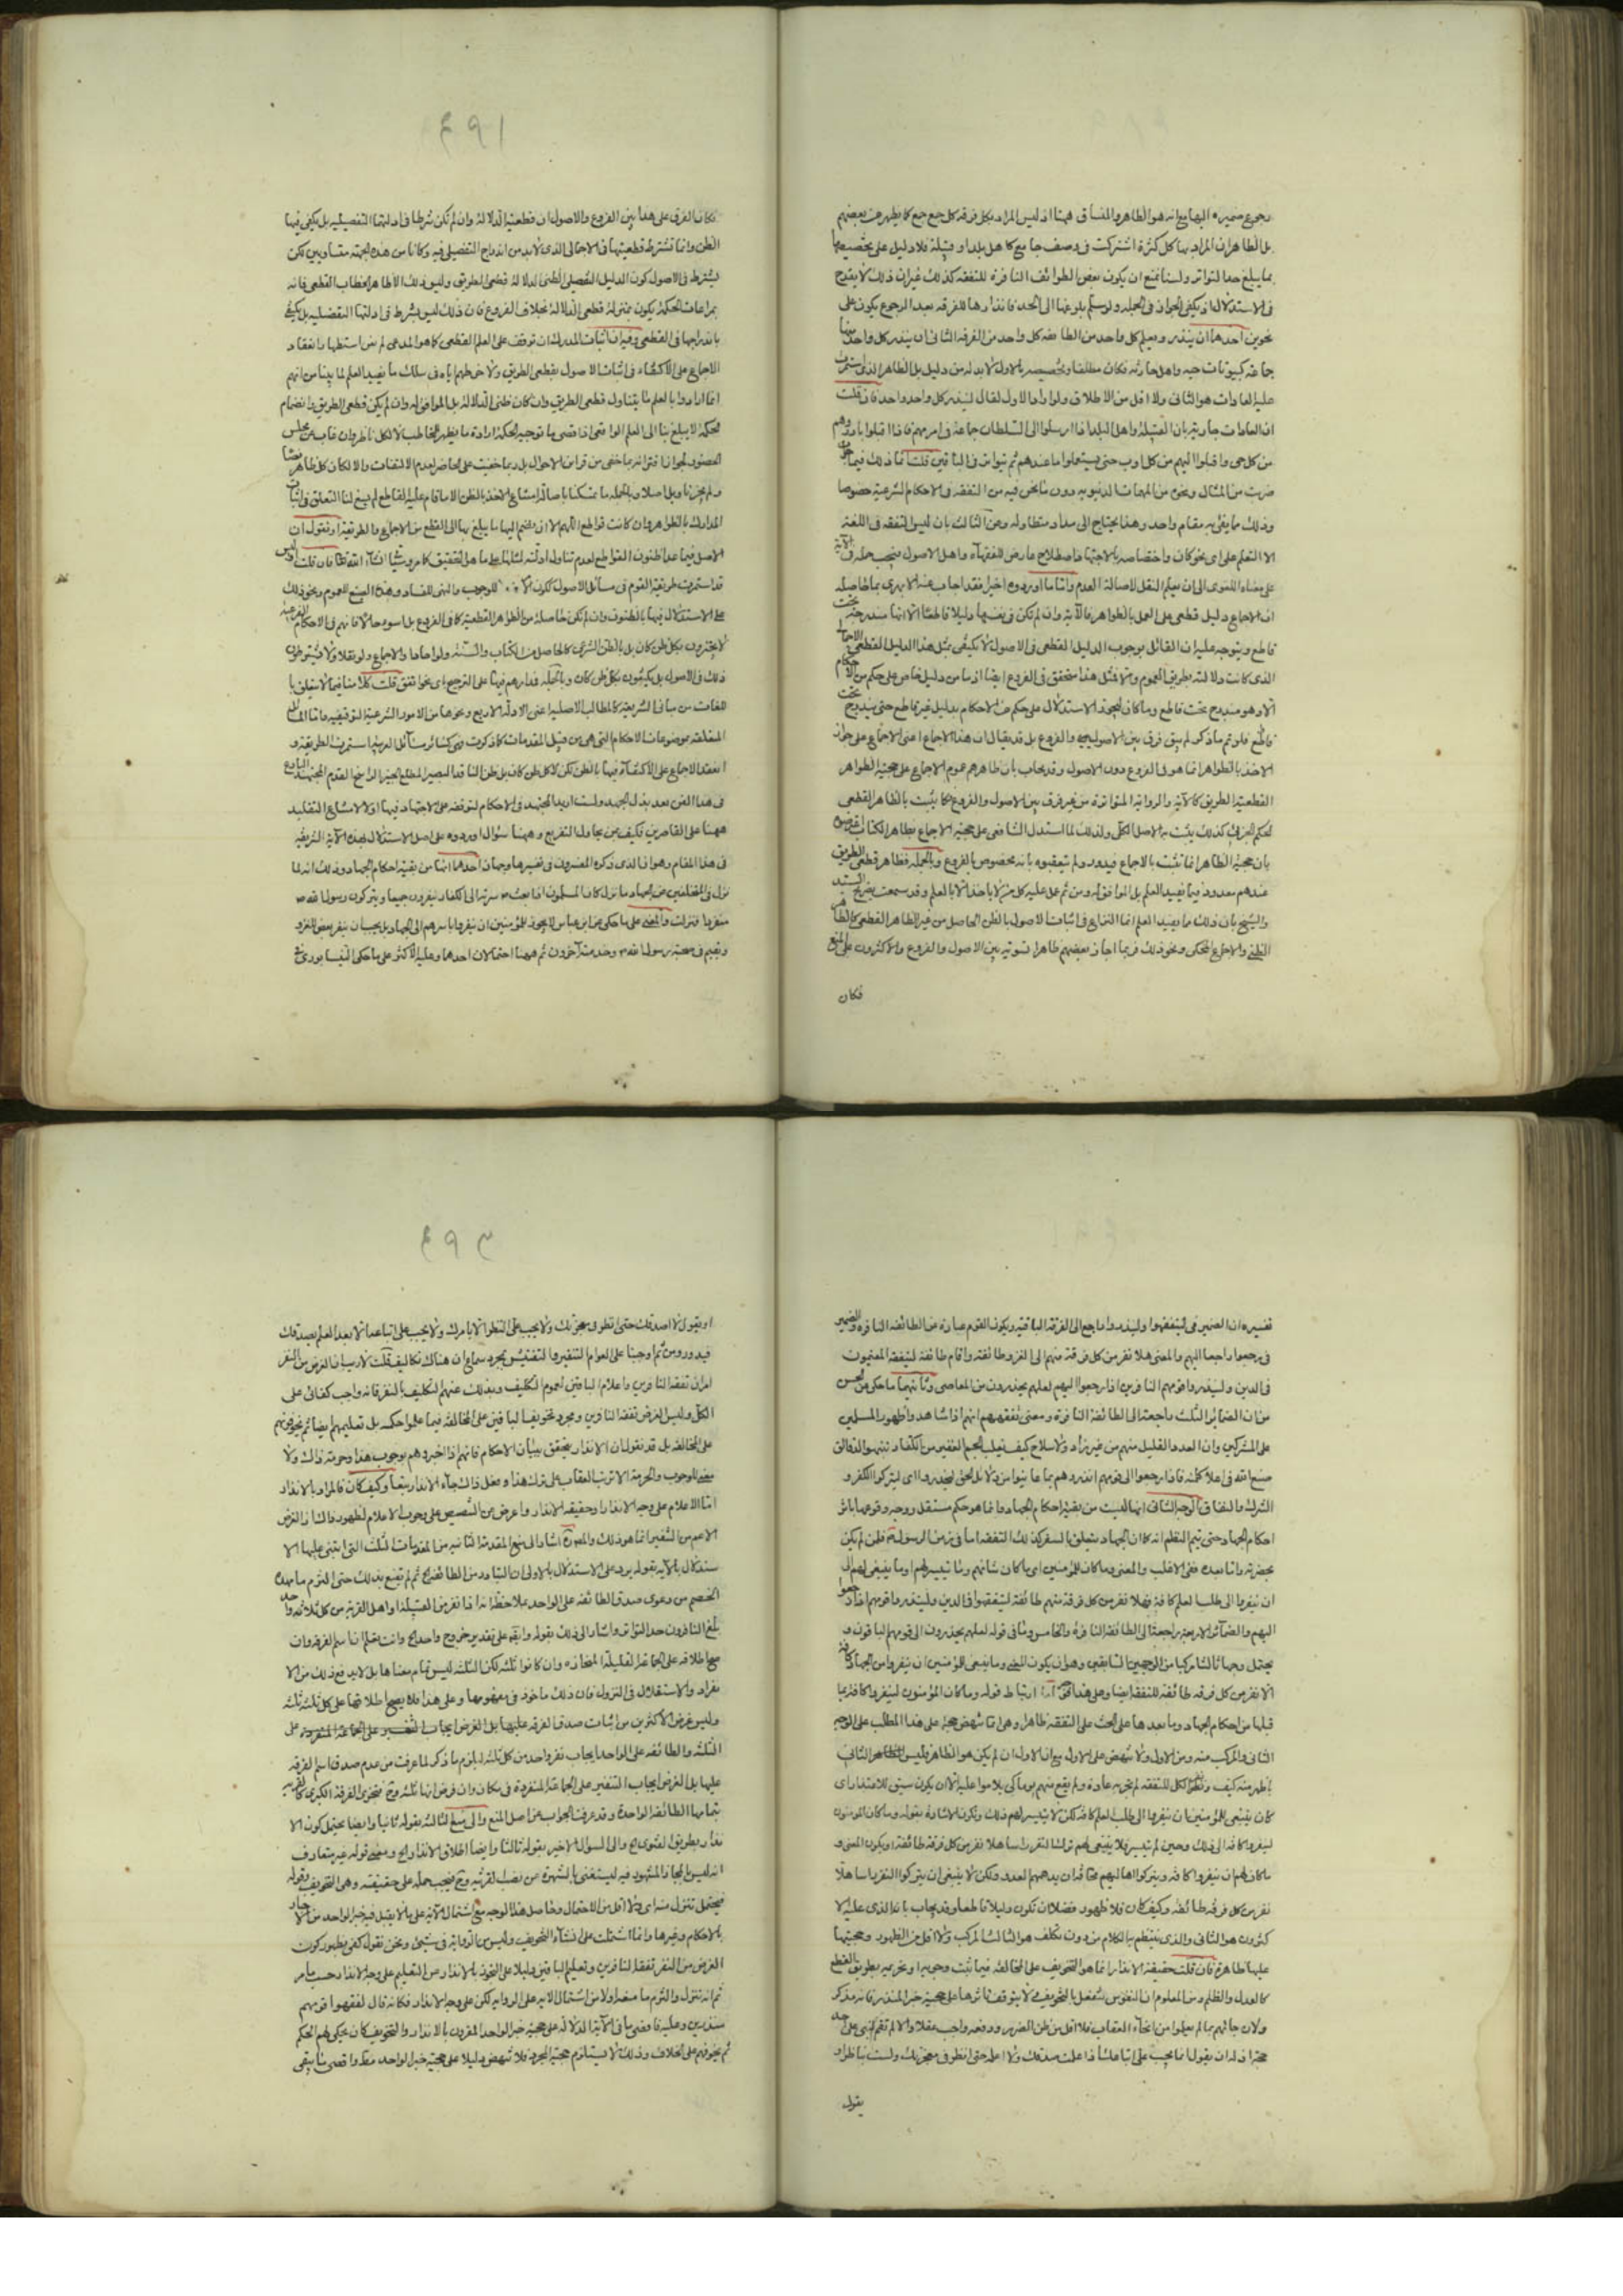 رجوع ضميره اليها مع انه هو الظاهر والمنساق فهنا اذ ليس المراد بكل فرقة كل جمع جمع كما يظهر من بعضهم
بل الظاهر ان المراد بها كل كثرة اشتركت في وصف جامع كاهل بلد او قبيلة فلا دليل على تخصيصها
بما يبلغ حد التواتر ولسنا نمنع ان يكون بعض الطوائف النافرة للتفقه كذلك غير ان ذلك لا يقدح
في الاستدلال اذ يكفي الجواز في الجملة ولو سلم بلوغها الى الحد فانذارها للفرقة بعد الرجوع يكون على
نحوين احدهما ان ينذر ويعلم كل واحد من الطائفة كل واحد من الفرقة الثاني ان ينذر كل واحد منها
جماعة كبيوتات حيه واهل حارته فكان مطلقا وتخصيصه بالاول لا بد له من دليل بل الظاهر الذي استمرت
عليه العادات هو الثاني ولا اقل من الاطلاق ولو اراد الاول لقال لينذر كل واحد واحد فان قلت
ان العادات جارية بان القبيلة واهل البلد اذا ارسلوا الى السلطان جماعة في امر مهم فاذا اقبلوا بادروهم
من كل حى واقبلوا اليهم من كل اوب حتى يستعلموا ما عندهم ثم يتواتر في الباقين قلت انما ذلك فيما
ضربت من المثال ونحوه من المهمات الدنيوية دون ما نحن فيه من التفقه في الاحكام الشرعية خصوصا
وذلك ما يفي به مقام واحد وهذا يحتاج الى مدد متطاولة وعن الثالث بان ليس التفقه في اللغة
الا التعلم على اى نحو كان واختصاصه بالاجتهاد اصطلاح عارض للفقهاء واهل الاصول فيجب حمله في الاية
على معناه اللغوى الى ان يعلم النقل لاصالة العدم واما ما اورده اخيرا فقد اجاب عنه الابهري بما حاصله
ان الاجماع دليل قطعي على العمل بالظواهر فالآية وان لم تكن في نفسها دليلا قاطعا الا انها مندرجة تحت
قاطع ويتوجه عليه ان القائل بوجوب الدليل القطعي في الاصول لا يكتفي بمثل هذا الدليل القطعي
الذى كانت دلالته بطريق العموم والا فمثل هذا متحقق في الفروع ايضا اذ ما من دليل خاص على حكم من الاحكام
الا وهو مندرج تحت قاطع وما كان ليجوز الاستدلال على حكم من الاحكام بدليل غير قاطع حتى يندرج تحت
قاطع فلو تم ما ذكر لم يبق فرق بين الاصوليين والفروع بل قد يقال ان هذا الاجماع اعنى الاجماع على جواز
الاخذ بالظواهر انما هو في الفروع دون الاصول وقد يجاب بان ظاهرهم عموم الاجماع على حجية الظواهر
القطعية الطريق كالآية والرواية المتواترة من غير فرق بين الاصول والفروع فكما يثبت بالظاهر القطعي
الحكم الجزئي كذلك يثبت به الاصل الكلي ولذلك لما استدل الشافعي على حجية الاجماع بظاهر الكتاب اعترضوه
بان حجية الظاهر انما تثبت بالاجماع فيدور ولم يتعقبوه بانه مخصوص بالفروع وبالجملة فظاهر قطعي الطريق
عندهم معدود فيما يفيد العلم بل
والشيخ بان ذلك ما يفيد العلم انما النزاع في اثبات الاصول بالظن الحاصل من غير الظاهر القطعي كالظاهر
الظني والاجماع المحكى ونحو ذلك فربما اجاز بعضهم ظاهرا تسوية بين الاصول والفروع والاكثرون على المنع
فكان
٤٩١
فكان الفرق على هذا بين الفروع والاصول ان قطعية الدلالة وان لم تكن شرطا في ادلتها التفصيلية بل يكفي فيها
الظن وانما تشترط قطعيتها في الاجمالى الذى لا بد من اندراج التفصيلي فيه وكانا من هذه الجهة متساويين لكن
يشترط في الاصول كون الدليل التفصيلي الظني الدلالة قطعي الطريق وليس ذلك الا ظاهر الخطاب القطعي فانه
بمراعات الحكمة يكون بمنزلة قطعي الدلالة بخلاف الفروع فان ذلك ليس بشرط في ادلتها التفصيلية بل يكفي
باندراجها في القطعي وفيه ان اثبات المدرك ان توقف على العلم القطعي كما هو المدعى لم نمنع استظهار انعقاد
الاجماع على الاكتفاء في اثبات الاصول بقطعي الطريق ولا خرطهم اياه في سلك ما يفيد العلم لما بينا من انهم
انما ارادوا بالعلم ما يتناول قطعي الطريق وان كان ظني الدلالة بل الموافق له وان لم يكن قطعي الطريق وانضمام
الحكمة لا يبلغ بنا الى العلم الواقعي اذ اقصى ما توجبه الحكمة ارادة ما يظهر للمخاطب لا لكل ناظر وان غاب عن مجلس
ولم يجز تاويل اصلا وبالجملة ما تمسكنا باصالة امتناع الاخذ بالظن الا ما قام عليه القاطع لم يسغ لنا التعلق في اثبات
المدارك بالظواهر وان كانت قواطع اللهم الا ان ينضم اليها ما يبلغ بها الى القطع من الاجماع والطريقة او نقول ان
الاصل فيما عدا مظنون القواطع لعدم تناول ادلته لمثلها على ما هو التحقيق كما مر وسيأتي ان شاء الله تعالى فان قلت اليس
قد استمرت طريقة القوم في مسائل الاصول ككون الامر للوجوب والنهى للفساد وهذه الصيغ للعموم ونحو ذلك
على الاستدلال فيها بالظنون وان لم تكن حاصلة من الظواهر القطعية كما في الفروع بل اسوء حالا فانهم في الاحكام الشرعية
لا يجتزون بكل ظن كان بل بالظن الشرعي كالحاصل من الكتاب والسنة ولو احادا والاجماع ولو نقلا ولا يشترطون
ذلك في الاصول بل يكتفون بكل ظن كان وبالجملة فمدارهم فيها على الترجيح باى نحو اتفق قلت كلامنا فيما لا يتعلق با
للغات من مباني الشريعة كالمطالب الاصلية اعنى الادلة الاربع ونحوها من الامور الشرعية التوقيفية واما المسائل
المتعلقة بموضوعات الاحكام التي هي من قبيل المقدمات كما ذكرت وهى كسائر مسائل العربية استمرت الطريقة و
انعقد الاجماع على الاكتفاء فيها بالظن لكن لا كل ظن كان بل ظن الناقد البصير المطلع الخبير الراسخ القدم المجتهد البارع
في هذا الفن بعد بذل الجهد ولست اريد المجتهد في الاحكام لتوقفه على الاجتهاد فيها اولا لامتناع التقليد
ههنا على القاصرين فكيف بمن يحاول التفريع وههنا سؤال اوردوه على اصل الاستدلال بهذه الآية الشريفة
في هذا المقام وهو ان الذى ذكره المفسرون في تفسيرها وجهان احدهما انها من بقية احكام الجهاد وذلك انه لما
نزل في المتخلفين عن الجهاد ما نزل كان المسلمون اذا بعث ص سرية الى الكفار ينفرون جميعا ويتركون رسول الله ص
منفردا فنزلت والمعنى على ما حكى عن ابن عباس لا يجوز للمؤمنين ان ينفروا باسرهم الى الجهاد بل يجب ان ينفر بعض للغزو
ويقيم في صحبة رسول الله ص وخدمته آخرون ثم ههنا احتمالان احدهما وعليه الاكثر على ما حكى النيسابورى في
تفسيره ان الضمير في ليتفقهوا ولينذروا راجع الى الفرقة الباقية ويكون القوم عبارة عن الطائفة النافرة والضمير
في رجعوا راجعا اليهم والمعنى هلا نفر من كل فرقة منهم الى الغزو طائفة واقام طائفة ليتفقه المقيمون
في الدين ولينذروا قومهم النافرين اذا رجعوا اليهم لعلهم يحذرون من المعاصى وثانيهما ما حكى عن الحسن
من ان الضمائر الثلث راجعة الى الطائفة النافرة ومعنى تفقههم انهم اذا شاهدوا ظهور المسلمين
على المشركين وان العدد القليل منهم من غير زاد ولا سلاح كيف يغلب الجم الغفير من الكفار تنبهوا لدقائق
صنع الله في اعلاء كلمته فاذا رجعوا الى قومهم انذروهم بما عاينوا من دلائل الحق ليحذروا اى ليتركوا الكفر و
الشرك والنفاق الوجه الثاني انها ليست من بقية احكام الجهاد وانما هو حكم مستقل ووجه وقوعها باثر
احكام الجهاد حتى يتم النظم انه كما ان الجهاد يتعلق بالسفر كذلك التفقه اما في زمن الرسول ص فلمن لم يكن
بحضرته واما بعده ففى الاغلب والمعنى وما كان للمؤمنين اى ما كان شانهم وما تيسر لهم او ما ينبغى لهم الى
ان ينفروا الى طلب العلم كافة فهلا نفر من كل فرقة منهم طائفة ليتفقهوا في الدين ولينذروا قومهم اذا رجعوا
اليهم والضمائر الاربعة راجعة الى الطائفة النافرة والخامس وهو في قوله لعلهم يحذرون الى قومهم الباقون و
يحتمل وجها ثالثا مركبا من الوجهين السابقين وهو ان يكون المعنى وما ينبغى للمؤمنين ان ينفروا من الجهاد كافة
الا نفر من كل فرقة طائفة للتفقه ايضا وعلى هذا
قبلها من احكام الجهاد وما بعدها على الحث على التفقه ظاهرا وهى انما تنهض حجة على هذا المطلب على الوجه
الثاني والمركب منه ومن الاول ولا تنهض على الاول مع ان الاول ان لم يكن هو الظاهر فليس الثاني
باظهر منه كيف ونفر الكل للتفقه لم تجر به عادة ولم يقع منهم يوما كى يلاموا عليه الا ان يكون سيق للامتداد اى
كان ينبغى للمؤمنين ان ينفروا الى طلب العلم كافة لكن لا تيسر لهم ذلك وتكون الاشارة بقوله وما كان المؤمنون
لينفروا كافة الى ذلك وحين لم تيسر فلا ينبغى لهم ترك النفر راسا هلا نفر من كل فرقة طائفة او يكون المعنى و
ما كان لهم ان ينفروا كافة ويتركوا اهاليهم مخافة ان يدهمهم العدو ولكن لا ينبغى ان يتركوا النفر راسا هلا
نفر من كل فرقة طائفة وكيف كان فلا ظهور فضلا ان تكون دليلا قاطعا وقد يجاب بان الذى عليه الا
كثرون هو الثاني والذى ينتظم به الكلام من دون تكلف هو الثالث المركب ولا اقل من الظهور وحجيتها
عليها ظاهرة فان قلت حقيقة الانذار انما هو التخويف على المخالفة فيما ثبت وجوبه او تحريمه بطريق القطع
كالعدل والظلم ومن المعلوم ان النفوس تنفعل بالتخويف ولا يتوقف تاثرها على حجية خبر المنذر فانه مذكر
ولان جائهم بما لم يعلموا من انحاء العقاب فلا اقل من ظن الضرر ودفعه واجب عقلا والا لم تقم للنبى على احد
حجة اذ له ان يقول انما يجب على اتباعك اذا علمت صدقك ولا اعلم حتى انظر في معجزتك ولست بناظر او
يقول
٤٩٣
او يقول لا اصدقك حتى انظر في معجزتك ولا يجب على النظر الا بامرك ولا يجب على اتباعك الا بعد العلم بصدقك
فيدور ومن ثم اوجبنا على العوام التنفير والتفتيش بمجرد سماع ان هناك تكاليف قلت لا ريب ان الغرض من النفر
امران تفقه النافرين واعلام الباقين لعموم التكليف وبذلك عنهم التكليف بالنفر فانه واجب كفائى على
الكل وليس الغرض تفقه النافرين ومجرد تخويف الباقين على المخالفة فيما علموا حكمه بل تعليمهم ايضا ثم تخويفهم
على المخالفة بل قد نقول ان الانذار يتحقق ببيان الاحكام فانهم اذا اخبروهم بوجوب هذا وحرمة ذاك ولا
معنى للوجوب والحرمة الا ترتب العقاب على ترك هذا وفعل ذاك جاء الانذار تبعا وكيف كان فالمراد بالانذار
اما الاعلام على وجه الانذار او حقيقة الانذار واعرض عن التنصيص على وجوب الاعلام لظهوره والشان الغرض
الاعم من التنفير انما هو ذلك اشار الى منع المقدمة الثانية من المقدمات الثلث التي ابتنى عليها الا
ستدلال بالآية بقوله يرد على الاستدلال بالاولى ان المتبادر من الطائفة الخ ثم لم يقنع بذلك حتى التزم ما مهده
الخصم من دعوى صدق الطائفة على الواحد ملاحظا انه اذا نفر من القبيلة او اهل القرية من كل ثلاثة واحد
بلغ النافرون حد التواتر واشار الى ذلك بقوله وايضا على تقدير خروج واحد الخ وانت تعلم ان اسم الفرقة وان
صح اطلاقه على الجماعة القليلة المنحازة وان كانوا ثلثة لكن الثلثة ليس تمام معناها بل لا بد مع ذلك من الا
نفراد والاستقلال في النزول فان ذلك ماخوذ في مفهومها وعلى هذا فلا يصح اطلاقها على كل ثلثة ثلثة
وليس غرض الاكثرين من اثبات صدق الفرقة عليها بل الغرض ايجاب على
الثلثة والطائفة على الواحد ايجاب نفر واحد من كل ثلثة ليلزم ما ذكر لما عرفت من عدم صدق اسم الفرقة
عليها بل الغرض ايجاب التنفير على الجماعة المتفردة في مكان وان فرض انها ثلثة وح فتحوى الفرقة الكبرى كالقرية
بتمامها الطائفة الواحدة وقد عرفت الجواب عن اصل المنع والى منع الثالثة بقوله ثانيا وايضا يحتمل كون الا
نذار بطريق الفتوى الخ والى السؤال الاخير بقوله ثالثا وايضا اطلاق الانذار الخ ومعنى قوله غير متعارف
انه ليس بالمجاز المشهور فيه ليستغنى بالشهرة عن نصب القرينة وح فيجب حمله على حقيقته وهى التخويف وقوله
فيحتمل تنزل منه اى ولا اقل من الاحتمال وحاصل هذا الوجه منع اشتمال الآية على ما لا يقبل فيه خبر الواحد من الاخبار
بالاحكام وغيرها وانما اشتملت على انشاء التخويف وليس من الرواية في شيء ونحن نقول كفى بظهور كون
الغرض من النفر تفقه النافرين وتعليم الباقين دليلا على التجوز بالانذار عن التعليم على وجه الانذار حسب ما مر
ثم انه تنزل والتزم ما منعه اولا من اشتمال الاية على الرواية لكن على وجه الانذار فكانه قال لتفقهوا قومهم
منذرين وعليه فاقصى ما في الآية الدلالة على حجية خبر الواحد المقرون بالانذار والتخويف كان يحكى لهم الحكم
ثم يخوفهم على الخلاف وذلك لا يستلزم حجية المجرد فلا تنهض دليلا على حجية خبر الواحد مطلقا واقصى ما يبقى